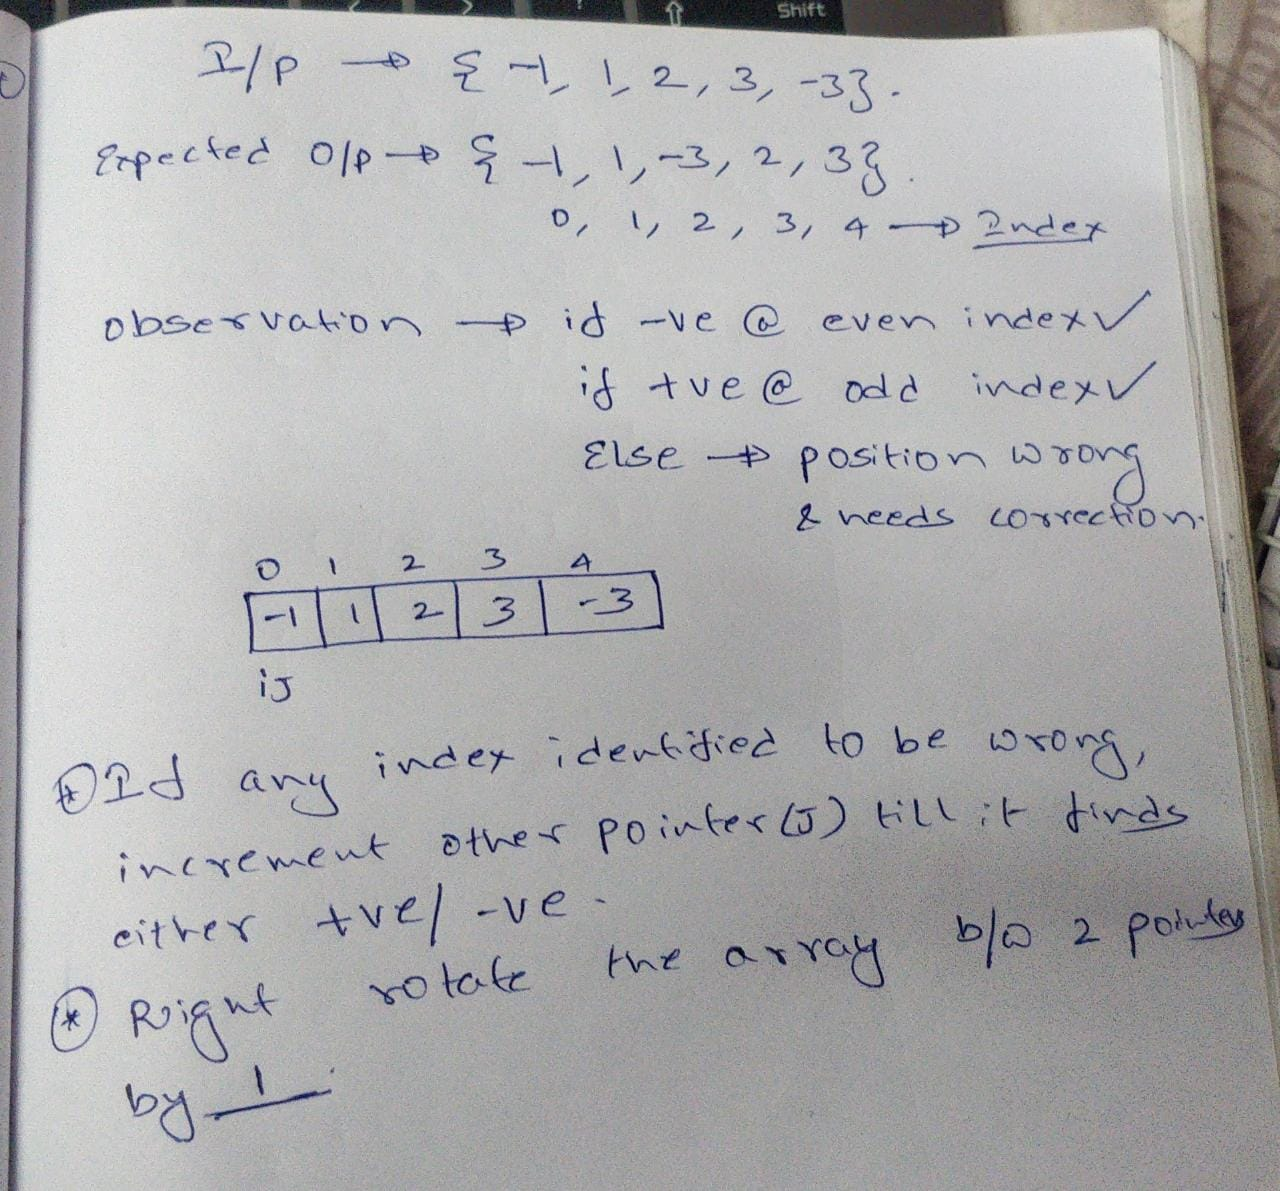 Shift
I/p → { -1, 1, 2, 3, -3}.
Expected O/p → { -1, 1, -3, 2, 3}.
0, 1, 2, 3, 4 → Index
observation → if -ve @ even index ✓
if +ve @ odd index ✓
Else → position wrong
& needs correction.
0 1 2 3 4
-1 1 2 3 -3
iJ
* If any index identified to be wrong,
increment other pointer (J) till it finds
either +ve/ -ve.
* Right rotate the array b/w 2 pointers
by 1